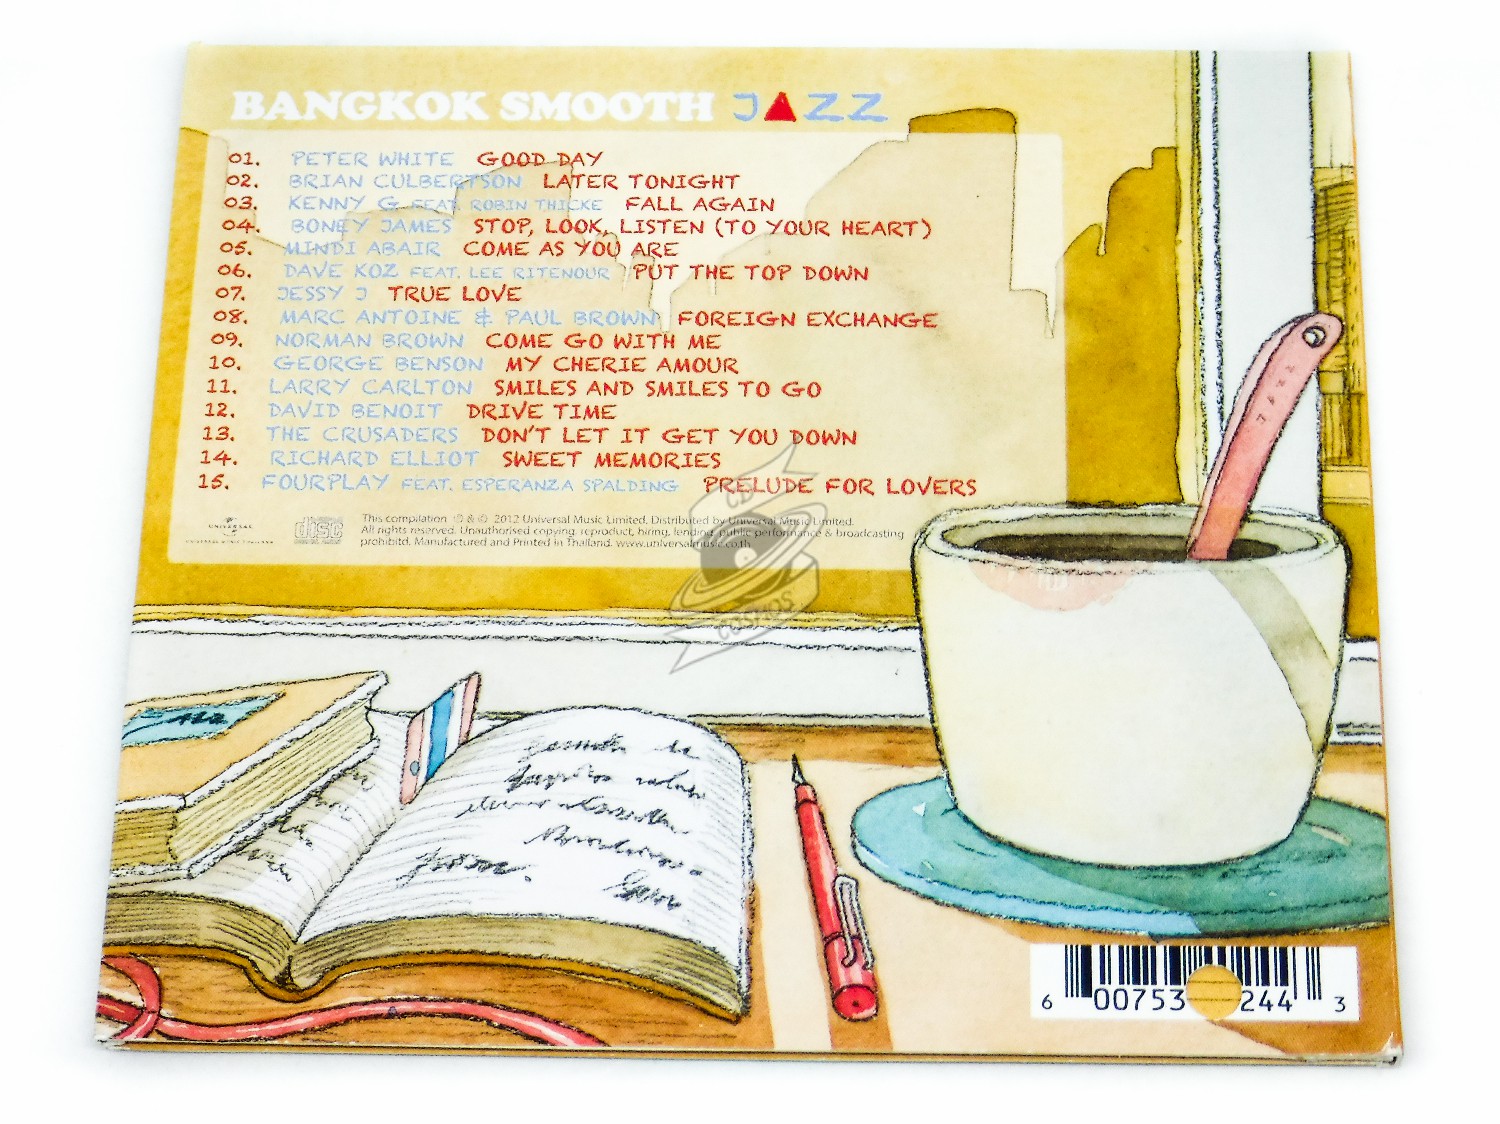 BANGKOK SMOOTH JAZZ
01. PETER WHITE GOOD DAY
02. BRIAN CULBERTSON LATER TONIGHT
03. KENNY G FEAT. ROBIN THICKE FALL AGAIN
04. BONEY JAMES STOP, LOOK, LISTEN (TO YOUR HEART)
05. MINDI ABAIR COME AS YOU ARE
06. DAVE KOZ FEAT. LEE RITENOUR PUT THE TOP DOWN
07. JESSY J TRUE LOVE
08. MARC ANTOINE & PAUL BROWN FOREIGN EXCHANGE
09. NORMAN BROWN COME GO WITH ME
10. GEORGE BENSON MY CHERIE AMOUR
11. LARRY CARLTON SMILES AND SMILES TO GO
12. DAVID BENOIT DRIVE TIME
13. THE CRUSADERS DON'T LET IT GET YOU DOWN
14. RICHARD ELLIOT SWEET MEMORIES
15. FOURPLAY FEAT. ESPERANZA SPALDING PRELUDE FOR LOVERS
UNIVERSAL
disc
This compilation ℗ & © 2012 Universal Music Limited. Distributed by Universal Music Limited.
All rights reserved. Unauthorised copying, reproduct, hiring, lending, public performance & broadcasting
prohibitd. Manufactured and Printed in Thailand. www.universalmusic.co.th
CD
COSMOS
6 00753 244 3